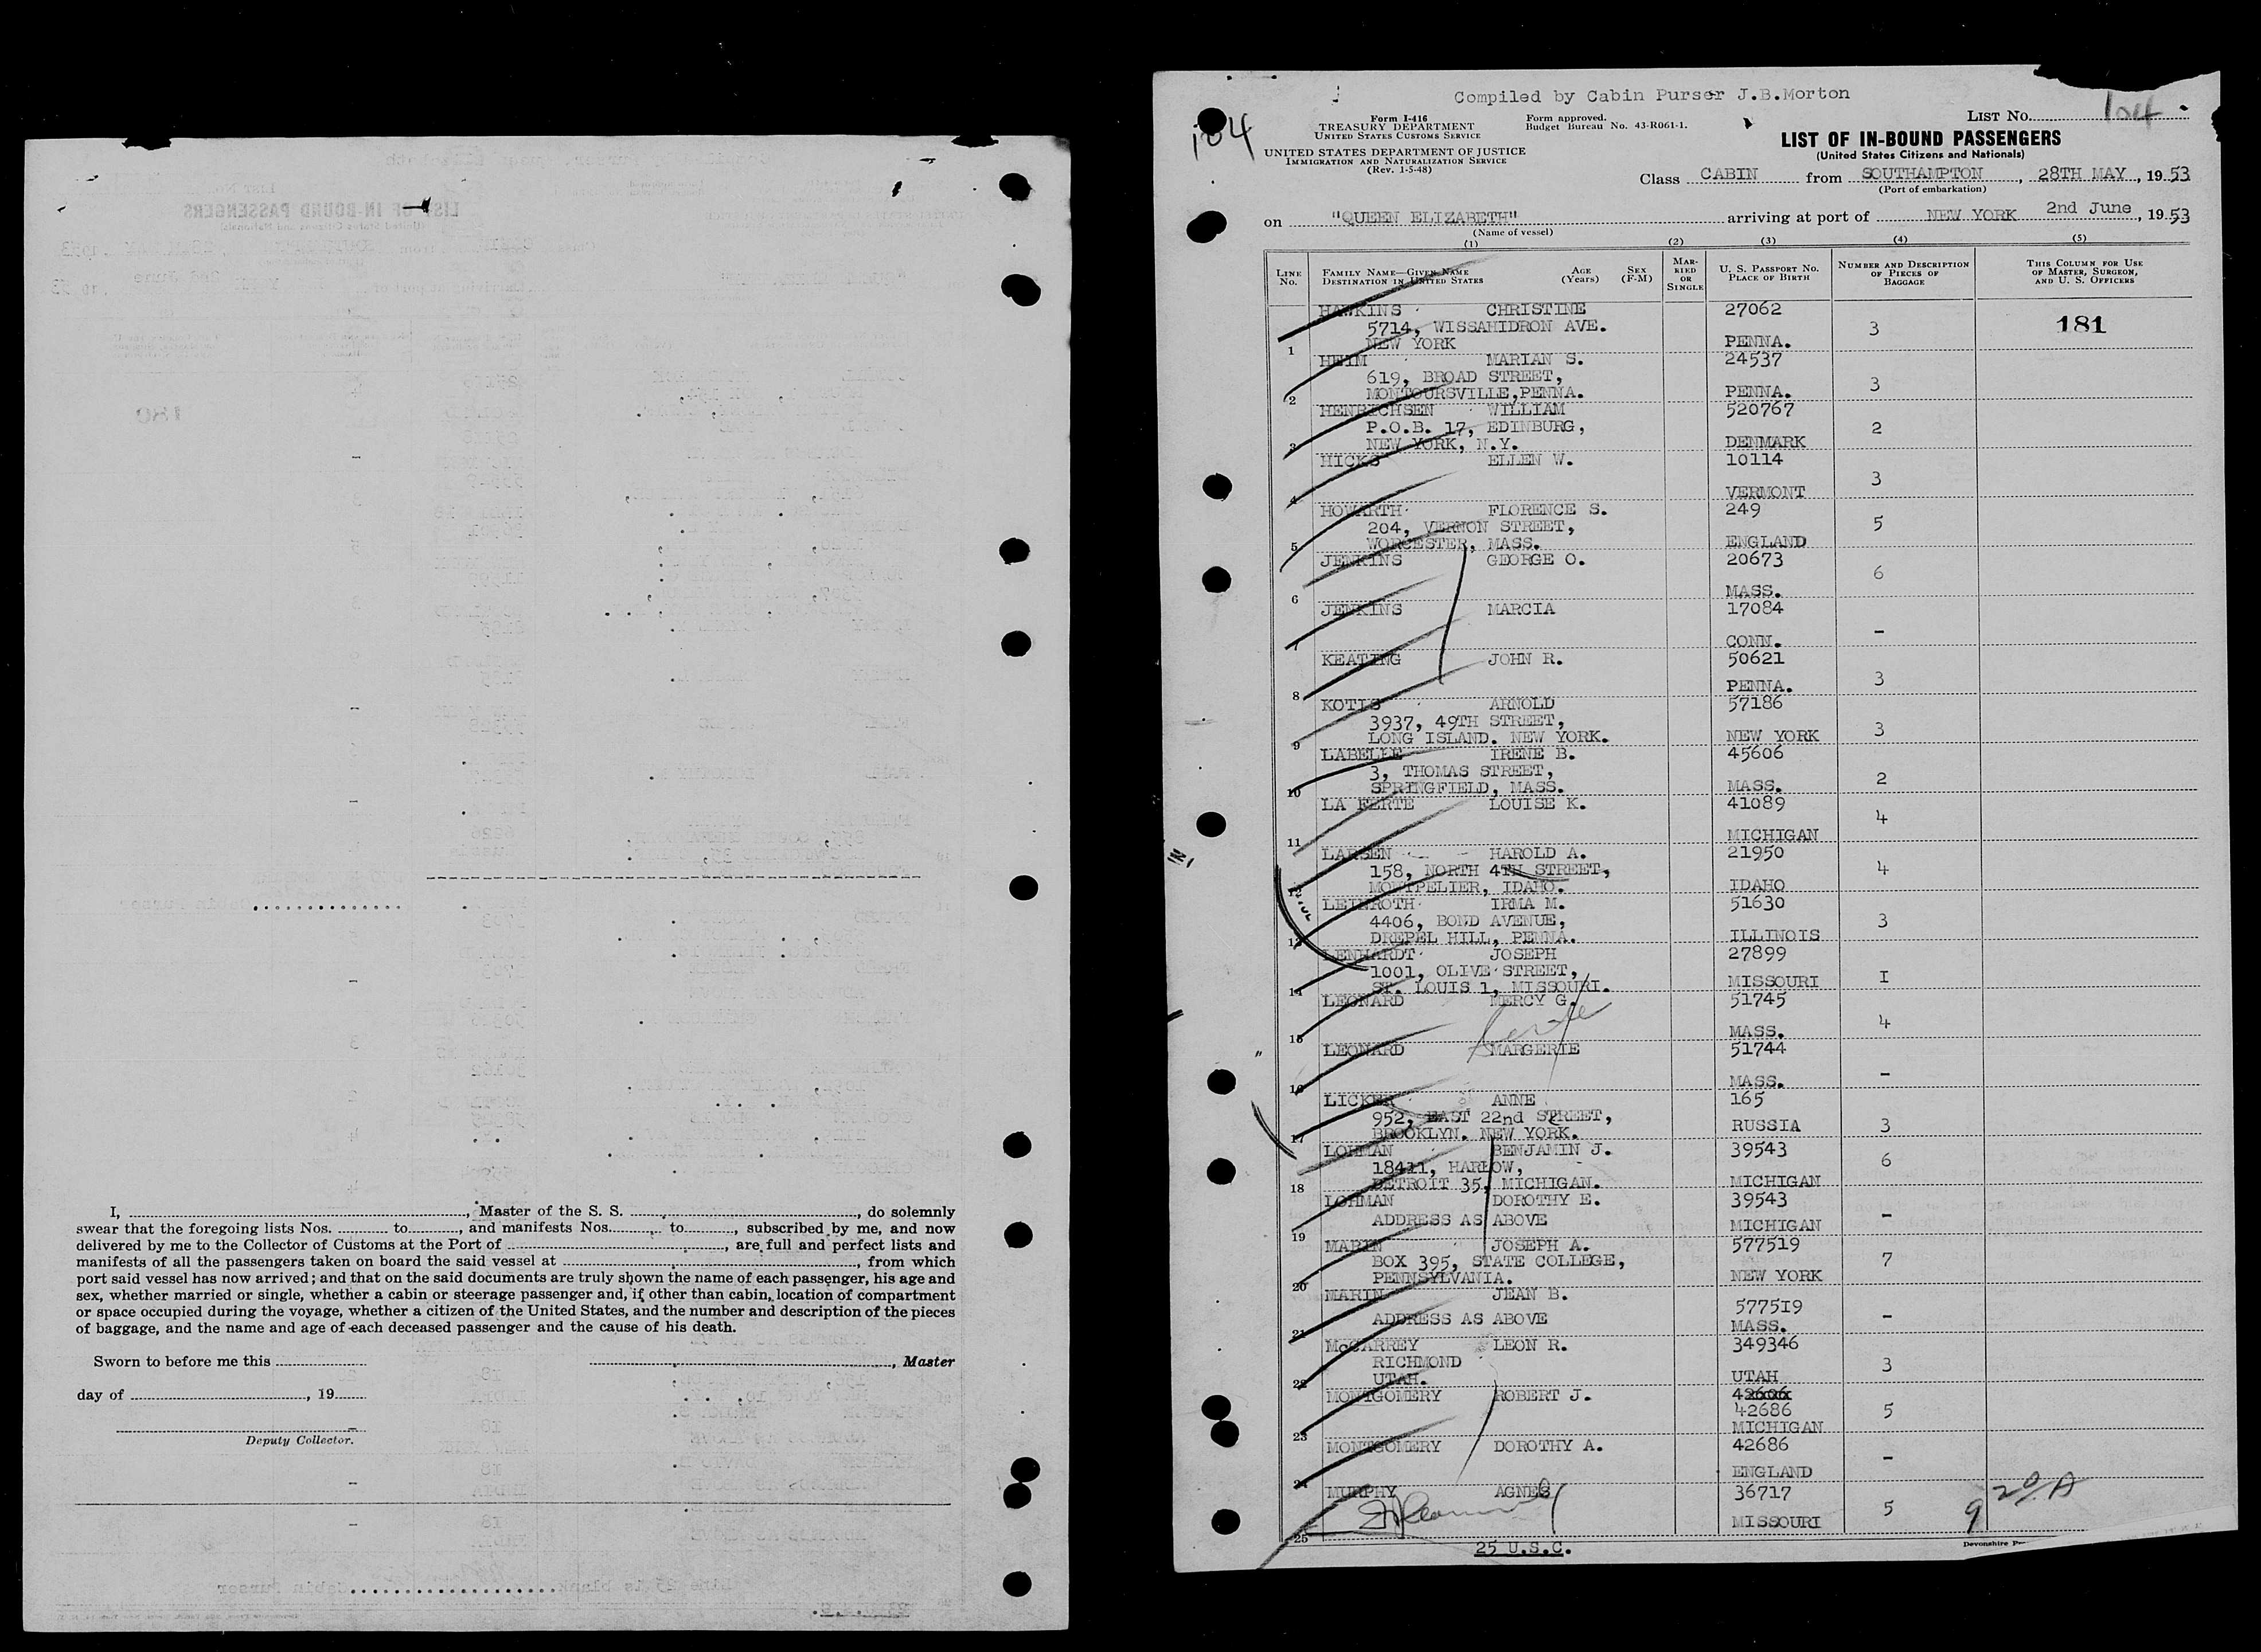 I, , Master of the S. S. , do solemnly
swear that the foregoing lists Nos. to , and manifests Nos. to , subscribed by me, and now
delivered by me to the Collector of Customs at the Port of , are full and perfect lists and
manifests of all the passengers taken on board the said vessel at , from which
port said vessel has now arrived; and that on the said documents are truly shown the name of each passenger, his age and
sex, whether married or single, whether a cabin or steerage passenger and, if other than cabin, location of compartment
or space occupied during the voyage, whether a citizen of the United States, and the number and description of the pieces
of baggage, and the name and age of each deceased passenger and the cause of his death.
Sworn to before me this
, Master
day of , 19
Deputy Collector.
Compiled by Cabin Purser J.B.Morton
104
Form I-416
TREASURY DEPARTMENT
UNITED STATES CUSTOMS SERVICE
UNITED STATES DEPARTMENT OF JUSTICE
IMMIGRATION AND NATURALIZATION SERVICE
(Rev. 1-5-48)
Form approved.
Budget Bureau No. 43-R061-1.
LIST No. 104
LIST OF IN-BOUND PASSENGERS
(United States Citizens and Nationals)
Class CABIN from SOUTHAMPTON , 28TH MAY , 19 53
(Port of embarkation)
on "QUEEN ELIZABETH" arriving at port of NEW YORK 2nd June , 19 53
(Name of vessel)
(1) (2) (3) (4) (5)
LINE No. FAMILY NAME—GIVEN NAME DESTINATION IN UNITED STATES AGE (Years) SEX (F-M) MARRIED OR SINGLE U. S. PASSPORT No. PLACE OF BIRTH NUMBER AND DESCRIPTION OF PIECES OF BAGGAGE THIS COLUMN FOR USE OF MASTER, SURGEON, AND U. S. OFFICERS
HAWKINS CHRISTINE 27062
5714, WISSAHIDRON AVE. 3 181
1 NEW YORK PENNA.
HEIM MARIAN S. 24537
619, BROAD STREET, 3
2 MONTOURSVILLE,PENNA. PENNA.
HENRICHSEN WILLIAM 520767
P.O.B. 17, EDINBURG, 2
3 NEW YORK, N.Y. DENMARK
HICKS ELLEN W. 10114
3
4 VERMONT
HOWARTH FLORENCE S. 249
204, VERNON STREET, 5
5 WORCESTER, MASS. ENGLAND
JENKINS GEORGE O. 20673
6
6 MASS.
JENKINS MARCIA 17084
-
7 CONN.
KEATING JOHN R. 50621
3
8 PENNA.
KOTIS ARNOLD 57186
3937, 49TH STREET, 3
9 LONG ISLAND. NEW YORK. NEW YORK
LABELLE IRENE B. 45606
3, THOMAS STREET, 2
10 SPRINGFIELD, MASS. MASS.
LA FERTE LOUISE K. 41089
4
11 MICHIGAN
LARSEN HAROLD A. 21950
158, NORTH 4TH STREET, 4
12 MONTPELIER, IDAHO. IDAHO
LEINROTH IRMA M. 51630
4406, BOND AVENUE, 3
13 DREPEL HILL, PENNA. ILLINOIS
LENHARDT JOSEPH 27899
1001, OLIVE STREET, I
14 ST. LOUIS 1, MISSOURI. MISSOURI
LEONARD MERCY G. 51745
4
15 MASS.
LEONARD MARGERIE 51744
-
16 MASS.
LICKER ANNE 165
952, EAST 22nd STREET, 3
17 BROOKLYN. NEW YORK. RUSSIA
LOHMAN BENJAMIN J. 39543
18411, HARLOW, 6
18 DETROIT 35, MICHIGAN. MICHIGAN
LOHMAN DOROTHY E. 39543
ADDRESS AS ABOVE -
19 MICHIGAN
MARIN JOSEPH A. 577519
BOX 395, STATE COLLEGE, 7
20 PENNSYLVANIA. NEW YORK
MARIN JEAN B.
577519
ADDRESS AS ABOVE -
21 MASS.
McCARREY LEON R. 349346
RICHMOND 3
22 UTAH. UTAH
MONTGOMERY ROBERT J. 42606
42686 5
23 MICHIGAN
MONTGOMERY DOROTHY A. 42686
-
24 ENGLAND
MURPHY AGNES 36717
5
25 MISSOURI
9 20 A
25 U.S.C.
Devonshire